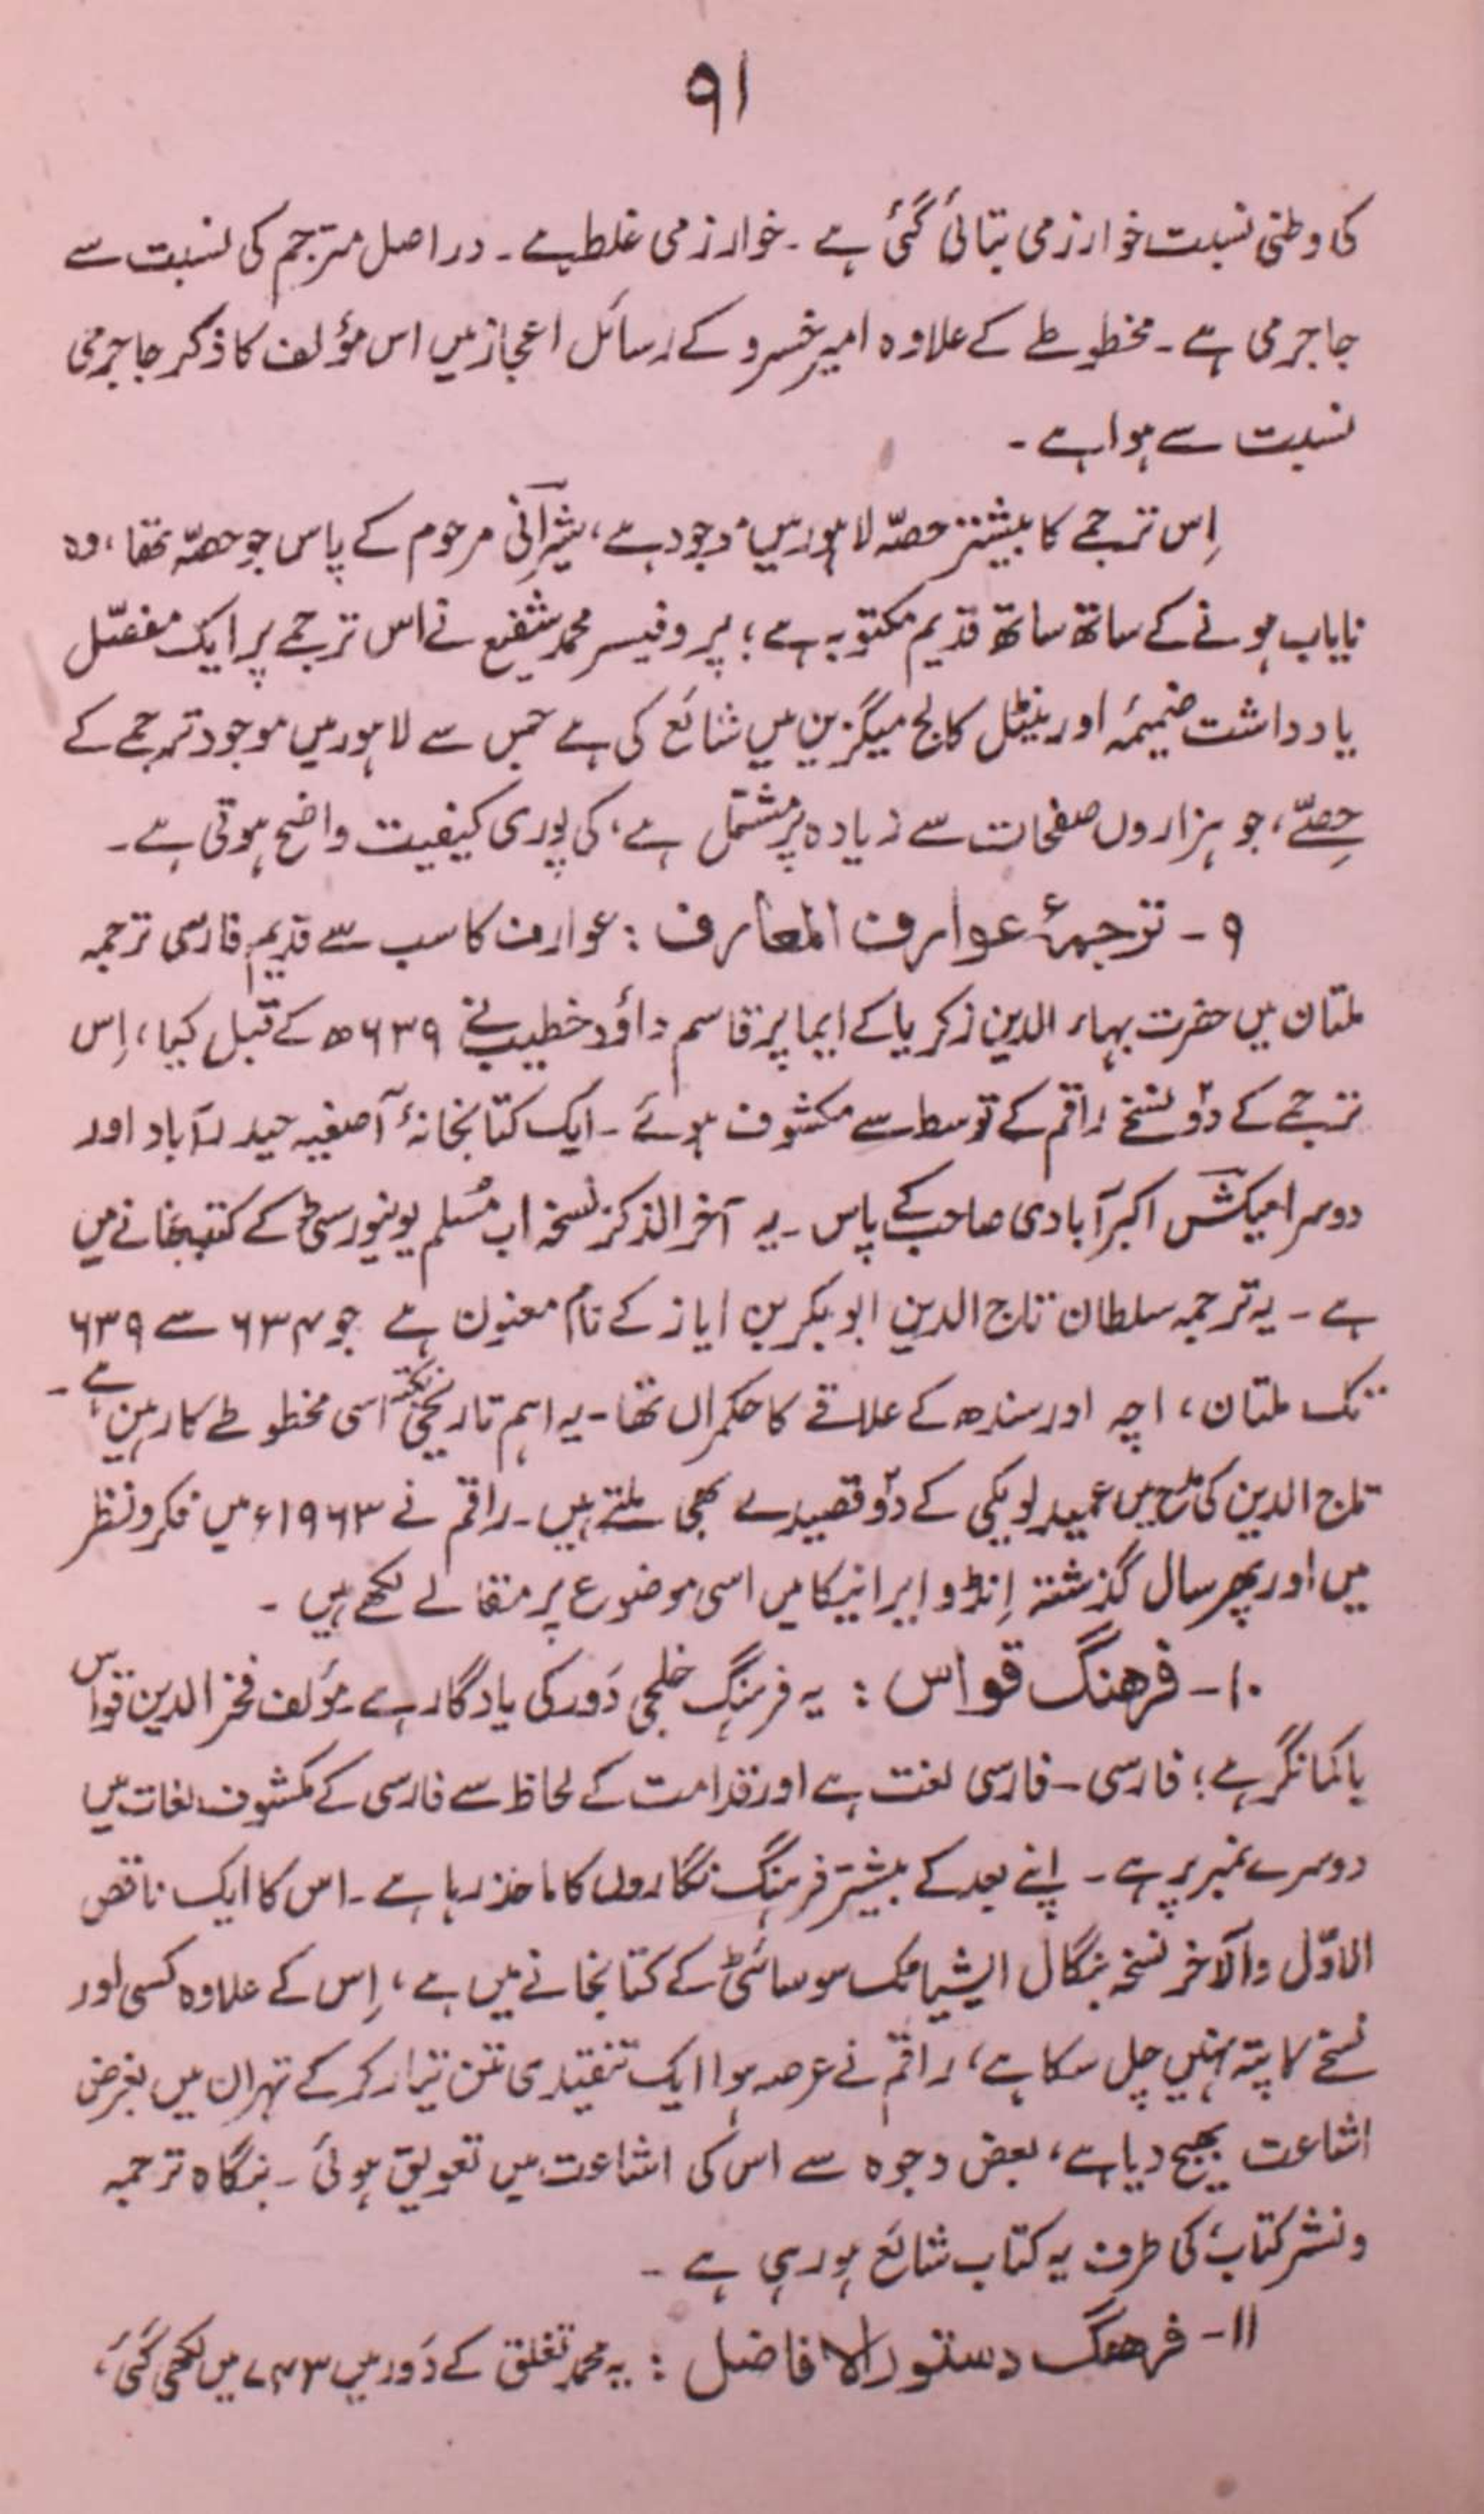 ۹۱
کی وطنی نسبت خوارزمی بتائی گئی ہے ۔ خوارزمی غلط ہے ۔ دراصل مترجم کی نسبت سے
جاجرمی ہے ۔ مخطوطے کے علاوہ امیر خسرو کے رسائل اعجاز میں اس مؤلف کا ذکر جاجرمی
نسبت سے ہوا ہے ۔
اِس ترجمے کا بیشتر حصّہ لاہور میں موجود ہے، شیرانی مرحوم کے پاس جو حصّہ تھا، وہ
نایاب ہونے کے ساتھ ساتھ قدیم مکتوبہ ہے؛ پروفیسر محمد شفیع نے اس ترجمے پر ایک مفصّل
یادداشت ضمیمۂ اورینٹل کالج میگزین میں شائع کی ہے جس سے لاہور میں موجود ترجمے کے
حِصّے، جو ہزاروں صفحات سے زیادہ پر مشتمل ہے، کی پوری کیفیت واضح ہوتی ہے ۔
۹ ۔ ترجمۂ عوارف المعارف : عوارف کا سب سے قدیم فارسی ترجمہ
ملتان میں حضرت بہاء الدین زکریا کے ایما پر قاسم داؤد خطیب نے ۶۳۹ھ کے قبل کیا، اِس
ترجمے کے دوٗ نسخے راقم کے توسط سے مکشوف ہوئے ۔ ایک کتابخانۂ آصفیہ حیدرآباد اور
دوسرا میکش اکبرآبادی صاحب کے پاس ۔ یہ آخر الذکر نسخہ اب مُسلم یونیورسٹی کے کتبخانے میں
ہے ۔ یہ ترجمہ سلطان تاج الدین ابوبکر بن ایاز کے نام معنون ہے جو ۶۳۷ سے ۶۳۹
تک ملتان، اچہ اور سندھ کے علاقے کا حکمراں تھا ۔ یہ اہم تاریخی نکتہ اسی مخطوطے کا رہین ہے ۔
تاج الدین کی مدح میں عمید لوبکی کے دوٗ قصیدے بھی ملتے ہیں ۔ راقم نے ۱۹۶۳ء میں فکر و نظر
میں اور پھر سال گذشتہ اِنڈو ایرانیکا میں اسی موضوع پر مقالے لکھے ہیں ۔
۱۰ ۔ فرهنگ قواس : یہ فرہنگ خلجی دَور کی یادگار ہے ۔ مؤلف فخر الدین قواس
یا کمانگر ہے؛ فارسی ۔ فارسی لغت ہے اور قدامت کے لحاظ سے فارسی کے مکشوف لغات میں
دوسرے نمبر پر ہے ۔ اپنے بعد کے بیشتر فرہنگ نگاروں کا ماخذ رہا ہے ۔ اس کا ایک ناقص
الاوّل والآخر نسخہ بنگال ایشیاٹک سوسائٹی کے کتابخانے میں ہے، اِس کے علاوہ کسی اور
نسخے کا پتہ نہیں چل سکا ہے، راقم نے عرصہ ہوا ایک تنقیدی متن تیار کر کے تہران میں بغرض
اشاعت بھیج دیا ہے، بعض وجوہ سے اس کی اشاعت میں تعویق ہوئی ۔ بنگاہ ترجمہ
و نشر کتاب، کی طرف یہ کتاب شائع ہو رہی ہے ۔
۱۱ ۔ فرهنگ دستور الافاضل : یہ محمد تغلق کے دَور میں ۷۴۳ میں لکھی گئی،